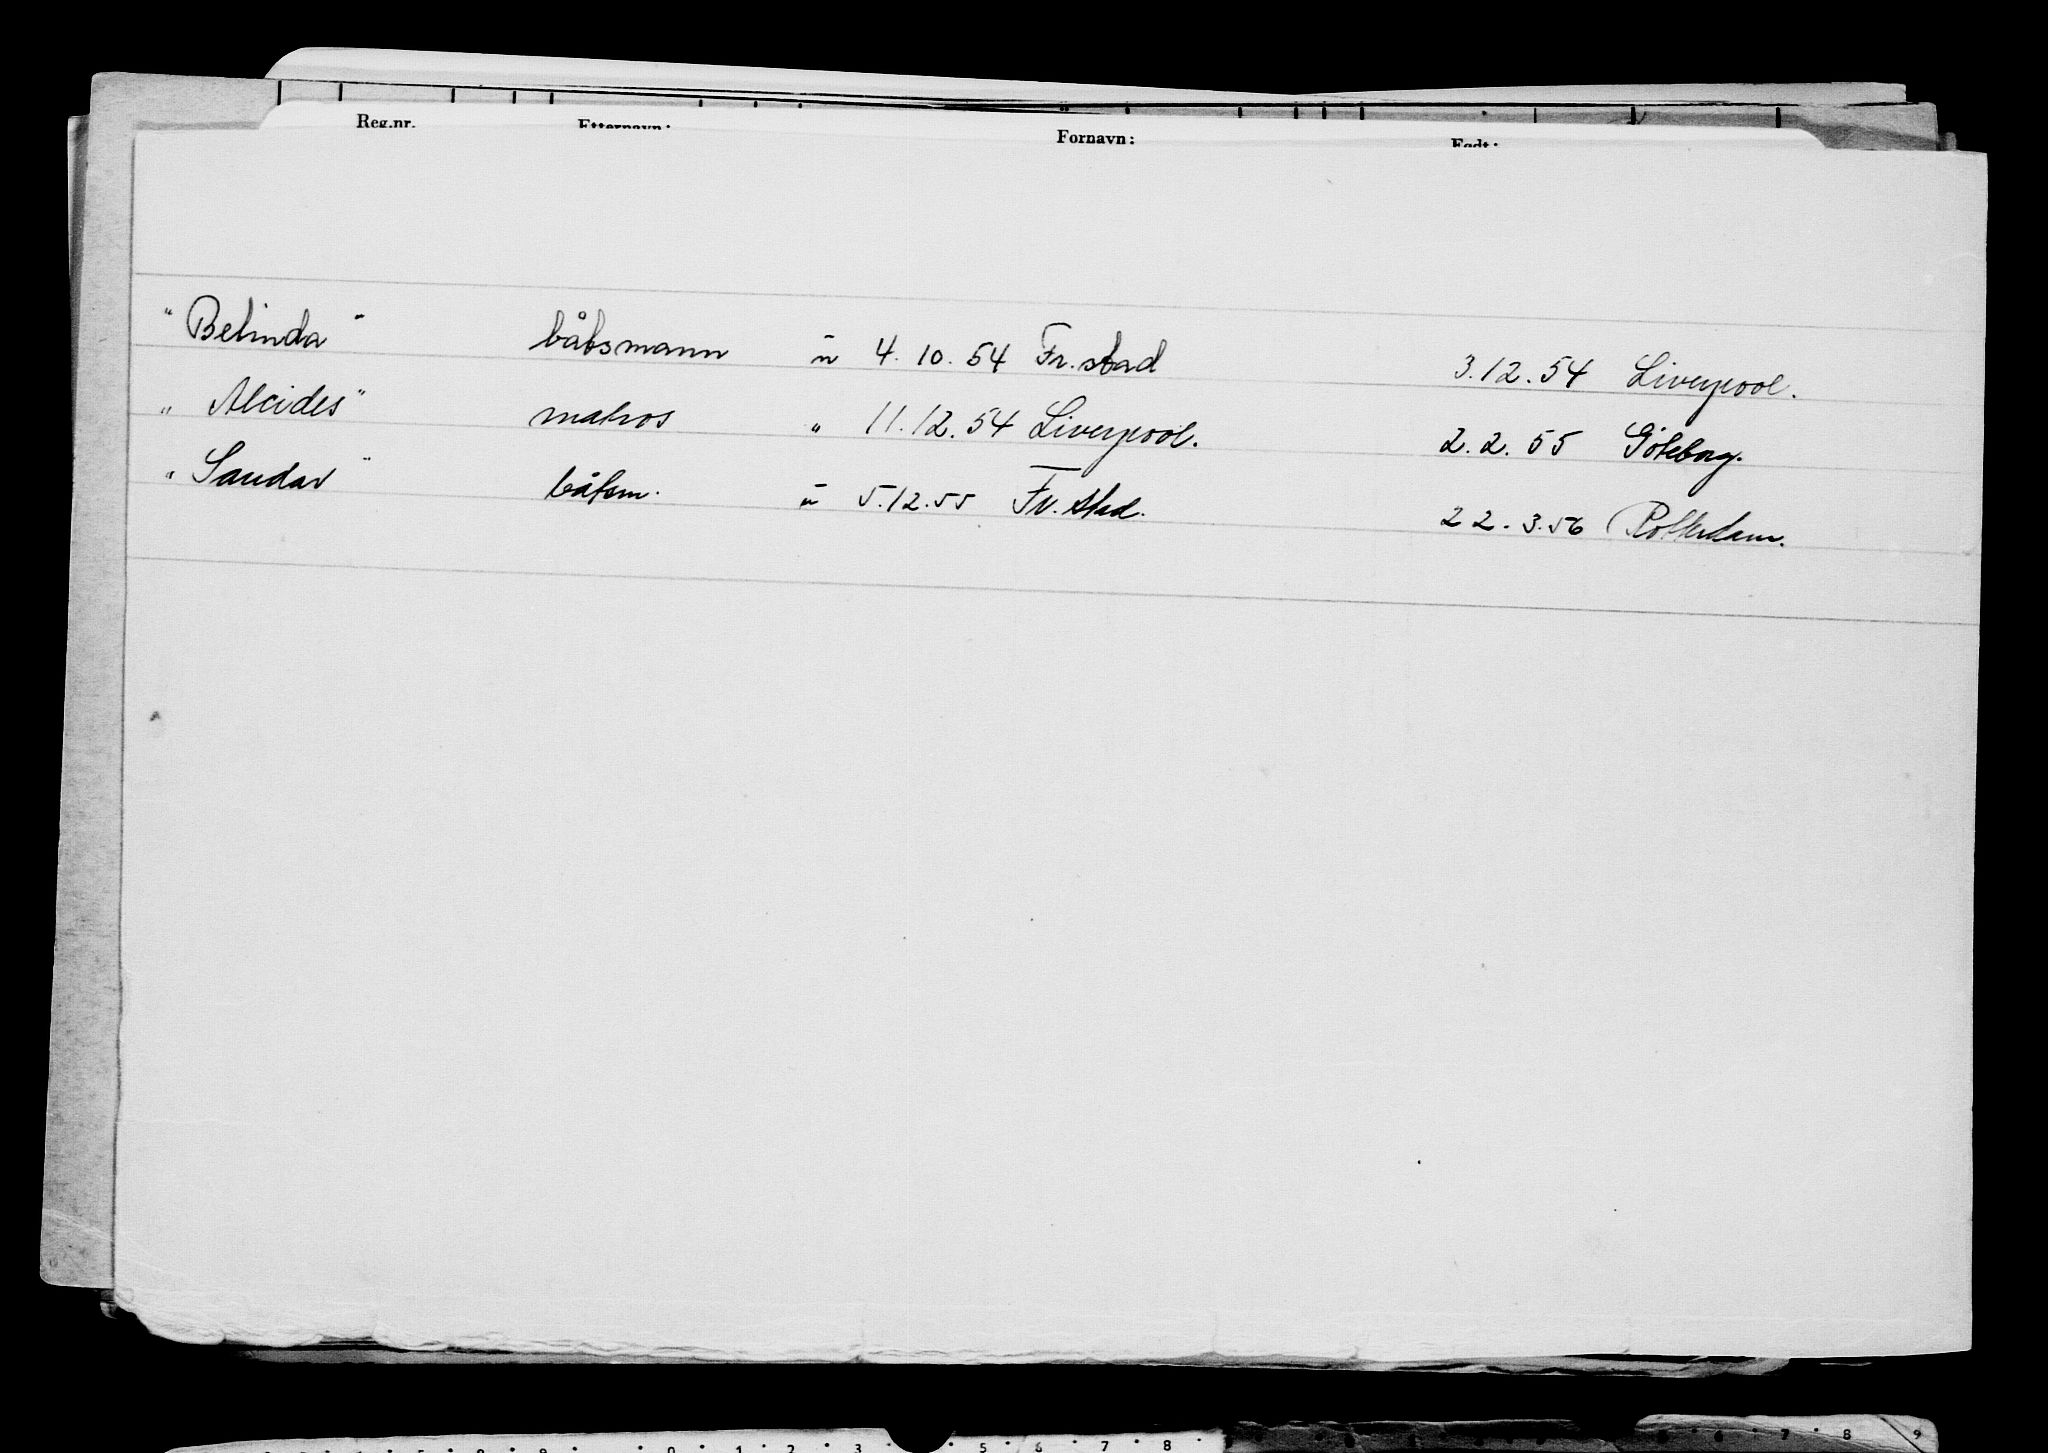 Reg.nr. Etternavn: Fornavn: Født:
"Belinda" båtsmann " 4.10.54 Fr.stad 3.12.54 Liverpool.
"Alcides" matros " 11.12.54 Liverpool. 2.2.55 Göteborg.
"Sandar" båtsm. " 5.12.55 Fr.stad. 22.3.56 Rotterdam.